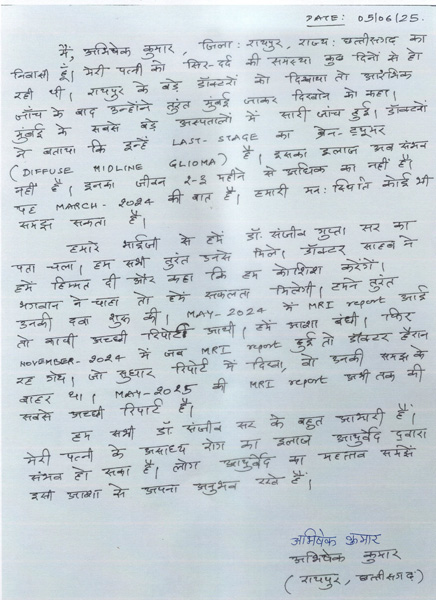 DATE: 05/06/25.
मैं, अभिषेक कुमार, जिला: रायपुर, राज्य: छत्तीसगढ़ का
निवासी हूँ। मेरी पत्नी को सिर-दर्द की समस्या कुछ दिनों से हो
रही थी। रायपुर के बड़े डॉक्टरों को दिखाया तो आरंभिक
जाँच के बाद उन्होंने तुरंत मुंबई जाकर दिखाने को कहा।
मुंबई के सबसे बड़े अस्पतालों में सारी जांच हुई। डॉक्टरों
ने बताया कि इन्हें LAST-STAGE का ब्रेन-ट्यूमर
(DIFFUSE MIDLINE GLIOMA) है। इसका इलाज अब संभव
नहीं है। इनका जीवन 2-3 महीने से अधिक का नहीं है।
यह MARCH-2024 की बात है। हमारी मन:स्थिति कोई भी
समझ सकता है।
हमारे भाईजी से हमें डॉ. संजीव गुप्ता सर का
पता चला। हम सभी तुरंत उनसे मिले। डॉक्टर साहब ने
हमें हिम्मत दी और कहा कि हम कोशिश करेंगे।
भगवान ने चाहा तो हमें सफलता मिलेगी। हमने तुरंत
उनकी दवा शुरू की। MAY-2024 में MRI report आई
तो काफी अच्छी रिपोर्ट आयी। हमें आशा बंधी। फिर
NOVEMBER-2024 में जब MRI report हुई तो डॉक्टर हैरान
रह गये। जो सुधार रिपोर्ट में दिखा, वो उनकी समझ के
बाहर था। MAY-2025 की MRI report अभी तक की
सबसे अच्छी रिपोर्ट है।
हम सभी डॉ. संजीव सर के बहुत आभारी हैं।
मेरी पत्नी के असाध्य रोग का इलाज आयुर्वेद द्वारा
संभव हो सका है। लोग आयुर्वेद का महत्व समझें
इसी आशा से अपना अनुभव रखे हैं।
अभिषेक कुमार
अभिषेक कुमार
(रायपुर, छत्तीसगढ़)